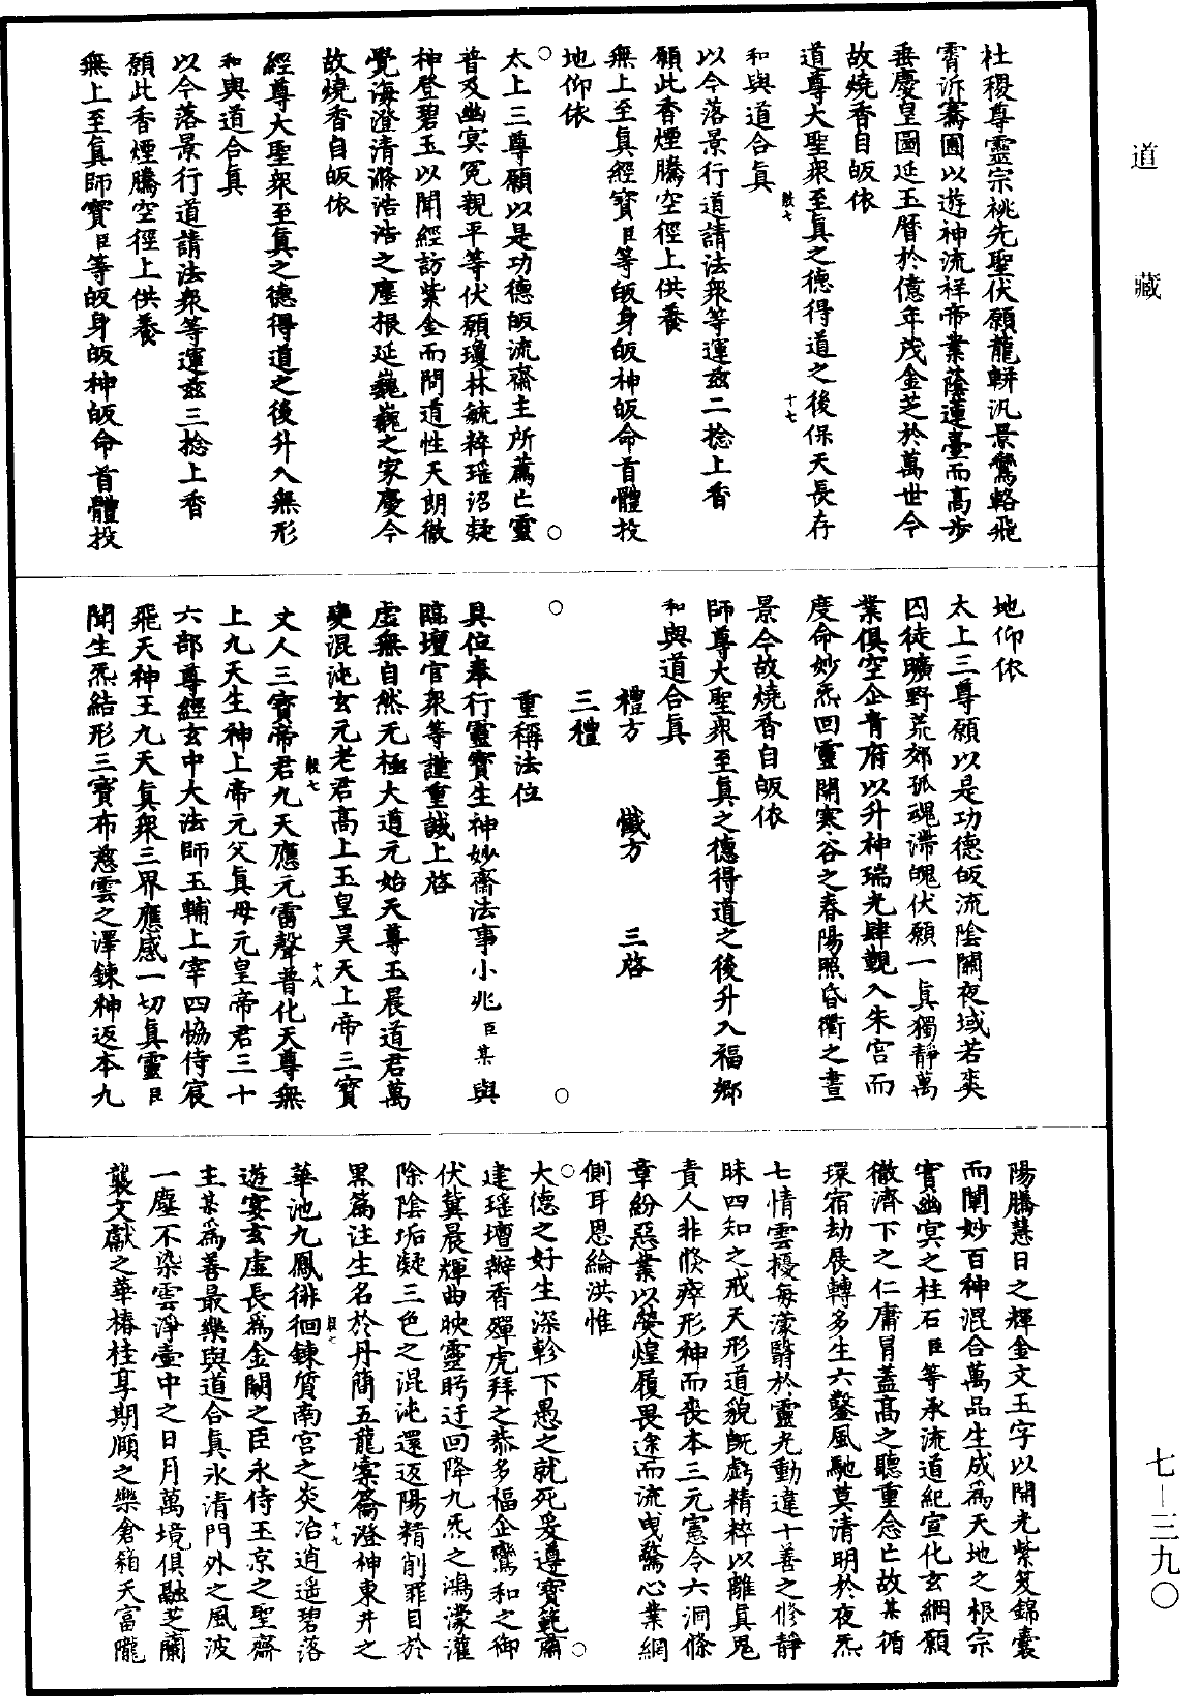 道藏
杜稷尊靈宗祧先聖伏願龍軿汎景鸞輅飛
霄泝騫圃以遊神流祥帝業蔭蓮臺而高步
垂慶皇圖延玉曆於億年茂金芝於萬世今
故燒香自皈依
道尊大聖衆至眞之德得道之後保天長存
和與道合眞
以今落景行道請法衆等運茲二捻上香
願此香煙騰空徑上供養
無上至眞經寶臣等皈身皈神皈命首體投
地仰依
太上三尊願以是功德皈流齋主所薦亡靈
普及幽冥冤親平等伏願瓊林毓粹瑤沼凝
神登碧玉以聞經訪紫金而問道性天朗徹
覺海澄清滌浩浩之塵根延巍巍之家慶今
故燒香自皈依
經尊大聖衆至眞之德得道之後升入無形
和與道合眞
以今落景行道請法衆等運茲三捻上香
願此香煙騰空徑上供養
無上至眞師寶臣等皈身皈神皈命首體投
地仰依
太上三尊願以是功德皈流陰關夜域若奕
囚徒曠野荒郊孤魂滯魄伏願一眞獨靜萬
業俱空企青府以升神瑞光肆觀入朱宮而
度命妙炁回靈開寒谷之春陽照昏衢之晝
景今故燒香自皈依
師尊大聖衆至眞之德得道之後升入福鄉
和與道合眞
禮方 懺方 三啓
三禮
重稱法位
具位奉行靈寶生神妙齋法事小兆臣某與
臨壇官衆等謹重誠上啓
虛無自然无極大道元始天尊玉晨道君萬
變混沌玄元老君高上玉皇昊天上帝三寶
丈人三寶帝君九天應元雷聲普化天尊無
上九天生神上帝元父眞母元皇帝君三十
六部尊經玄中大法師玉輔上宰四恊侍宸
飛天神王九天眞衆三界應感一切眞靈臣
聞生炁結形三寶布慈雲之澤鍊神返本九
陽騰慧日之輝金文玉字以開光紫笈錦囊
而闡妙百神混合萬品生成爲天地之根宗
實幽冥之柱石臣等承流道紀宣化玄綱願
徹濟下之仁庸冒蓋高之聽重念亡故某循
環宿劫展轉多生六鑿風馳莫清明於夜炁
七情雲擾每濛翳於靈光動違十善之修靜
昧四知之戒天形道貌旣虧精粹以離眞鬼
責人非倏瘁形神而喪本三元憲令六洞條
章紛惡業以熒煌履畏途而流曳驚心業網
側耳恩綸洪惟
大德之好生深軫下愚之就死爰遵寶範肅
建瑤壇瓣香殫虎拜之恭多福企鸞和之御
伏冀晨輝曲映靈眄迂回降九炁之鴻濛灌
除陰垢凝三色之混沌還返陽精削罪目於
黑篇注生名於丹簡五龍案籥澄神東井之
華池九鳳徘徊鍊質南宮之炎冶逍遥碧落
遊宴玄虛長爲金闕之臣永侍玉京之聖齋
主某爲善最樂與道合眞永清門外之風波
一塵不染雲淨壷中之日月萬境俱融芝蘭
襲文獻之華椿桂享期頤之樂倉箱天富隴
七－三九〇